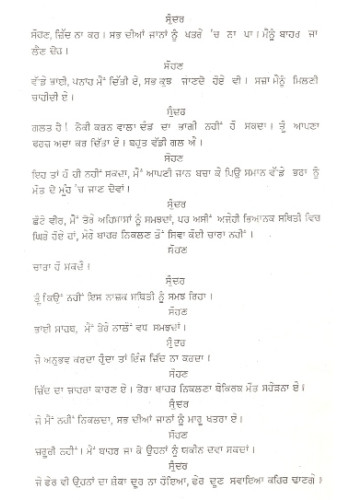 ਸੁੰਦਰ
ਸੋਹਣ, ਜ਼ਿੱਦ ਨਾ ਕਰ। ਸਭ ਦੀਆਂ ਜਾਨਾਂ ਨੂੰ ਖਤਰੇ 'ਚ ਨਾ ਪਾ। ਮੈਨੂੰ ਬਾਹਰ ਜਾ
ਲੈਣ ਦੇਹ।
ਸੋਹਣ
ਵੱਡੇ ਭਾਈ, ਪਨਾਂਹ ਮੈਂ ਦਿੱਤੀ ਏ, ਸਭ ਕੁਝ ਜਾਣਦੇ ਹੋਏ ਵੀ। ਸਜ਼ਾ ਮੈਨੂੰ ਮਿਲਣੀ
ਚਾਹੀਦੀ ਏ।
ਸੁੰਦਰ
ਗਲਤ ਹੈ! ਨੇਕੀ ਕਰਨ ਵਾਲਾ ਦੰਡ ਦਾ ਭਾਗੀ ਨਹੀਂ ਹੋ ਸਕਦਾ। ਤੂੰ ਆਪਣਾ
ਫਰਜ਼ ਅਦਾ ਕਰ ਦਿੱਤਾ ਏ। ਬਹੁਤ ਵੱਡੀ ਗਲ ਐ।
ਸੋਹਣ
ਇਹ ਤਾਂ ਹੋ ਹੀ ਨਹੀਂ ਸਕਦਾ, ਮੈਂ ਆਪਣੀ ਜਾਨ ਬਚਾ ਕੇ ਪਿਉ ਸਮਾਨ ਵੱਡੇ ਭਰਾ ਨੂੰ
ਮੌਤ ਦੇ ਮੂੰਹ 'ਚ ਜਾਣ ਦੇਵਾਂ।
ਸੁੰਦਰ
ਛੋਟੇ ਵੀਰ, ਮੈਂ ਤੇਰੇ ਅਹਿਸਾਸਾਂ ਨੂੰ ਸਮਝਦਾਂ, ਪਰ ਅਸੀਂ ਅਜੇਹੀ ਭਿਆਨਕ ਸਥਿਤੀ ਵਿਚ
ਘਿਰੇ ਹੋਏ ਹਾਂ, ਮੇਰੇ ਬਾਹਰ ਨਿਕਲਣ ਤੋਂ ਸਿਵਾ ਕੋਈ ਚਾਰਾ ਨਹੀਂ।
ਸੋਹਣ
ਚਾਰਾ ਹੋ ਸਕਦੈ।
ਸੁੰਦਰ
ਤੂੰ ਕਿਉਂ ਨਹੀਂ ਇਸ ਨਾਜ਼ਕ ਸਥਿਤੀ ਨੂੰ ਸਮਝ ਰਿਹਾ।
ਸੋਹਣ
ਭਾਈ ਸਾਹਬ, ਮੈਂ ਤੇਰੇ ਨਾਲੋਂ ਵਧ ਸਮਝਦਾਂ।
ਸੁੰਦਰ
ਜੇ ਅਨੁਭਵ ਕਰਦਾ ਹੁੰਦਾ ਤਾਂ ਇੰਜ ਜ਼ਿੱਦ ਨਾ ਕਰਦਾ।
ਸੋਹਣ
ਜ਼ਿੱਦ ਦਾ ਜ਼ਾਹਰਾ ਕਾਰਣ ਏ। ਤੇਰਾ ਬਾਹਰ ਨਿਕਲਣਾ ਬੇਕਿਰਕ ਮੌਤ ਸਹੇੜਨਾ ਏ।
ਸੁੰਦਰ
ਜੇ ਮੈਂ ਨਹੀਂ ਨਿਕਲਦਾ, ਸਭ ਦੀਆਂ ਜਾਨਾਂ ਨੂੰ ਮਾਰੂ ਖਤਰਾ ਏ।
ਸੋਹਣ
ਜ਼ਰੂਰੀ ਨਹੀਂ। ਮੈਂ ਬਾਹਰ ਜਾ ਕੇ ਉਹਨਾਂ ਨੂੰ ਯਕੀਨ ਦਵਾ ਸਕਦਾਂ।
ਸੁੰਦਰ
ਜੇ ਫੇਰ ਵੀ ਉਹਨਾਂ ਦਾ ਸ਼ੰਕਾ ਦੂਰ ਨਾ ਹੋਇਆ, ਫੇਰ ਦੂਣ ਸਵਾਇਆ ਕਹਿਰ ਢਾਣਗੇ।